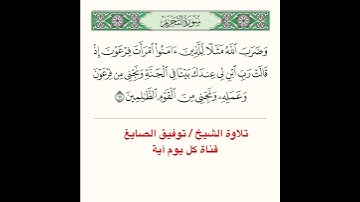 سورة التحريم
وَضَرَبَ ٱللَّهُ مَثَلًا لِّلَّذِينَ ءَامَنُوا۟ ٱمْرَأَتَ فِرْعَوْنَ إِذْ
قَالَتْ رَبِّ ٱبْنِ لِى عِندَكَ بَيْتًا فِى ٱلْجَنَّةِ وَنَجِّنِى مِن فِرْعَوْنَ
وَعَمَلِهِۦ وَنَجِّنِى مِنَ ٱلْقَوْمِ ٱلظَّٰلِمِينَ ۝١١
تلاوة الشيخ / توفيق الصايغ
قناة كل يوم آية